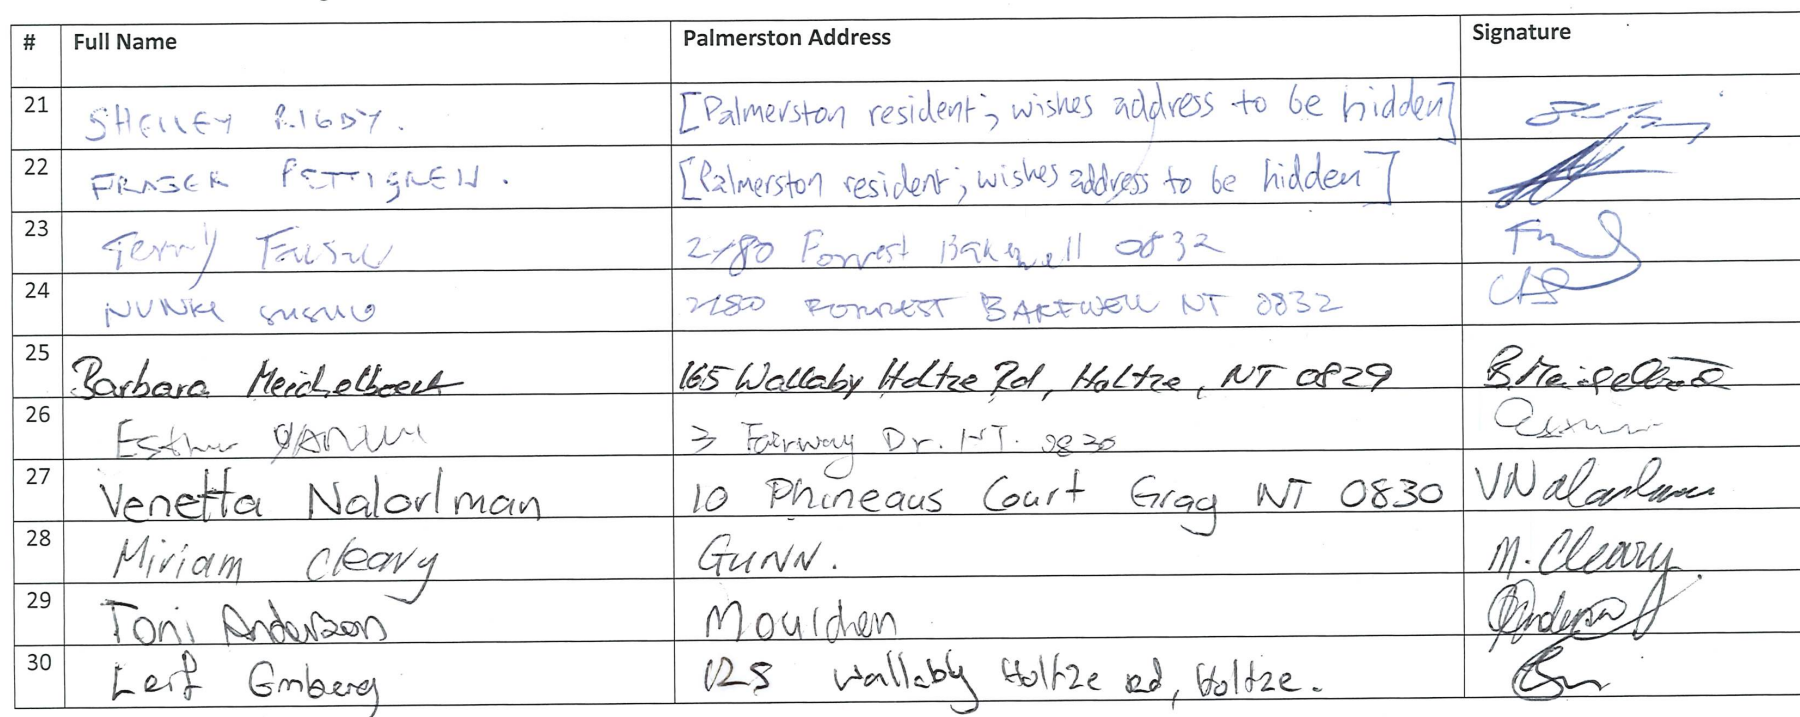 # Full Name Palmerston Address Signature
21 SHELLEY RIGBY. [Palmerston resident; wishes address to be hidden]
22 FRASER PETTIGREW. [Palmerston resident; wishes address to be hidden]
23 Terry 2/80 Forrest Bakewell 0832
24 2/80 FORREST BAKEWELL NT 0832
25 Barbara Meichelboeck 165 Wallaby Holtze Rd, Holtze, NT 0829
26 Esther 3 Fairway Dr. NT. 0830
27 Venetta Nalorlman 10 Phineaus Court Gray NT 0830
28 Miriam Cleary GUNN. M. Cleary
29 Toni Anderson Moulden
30 Leif wallaby Holtze rd, Holtze.